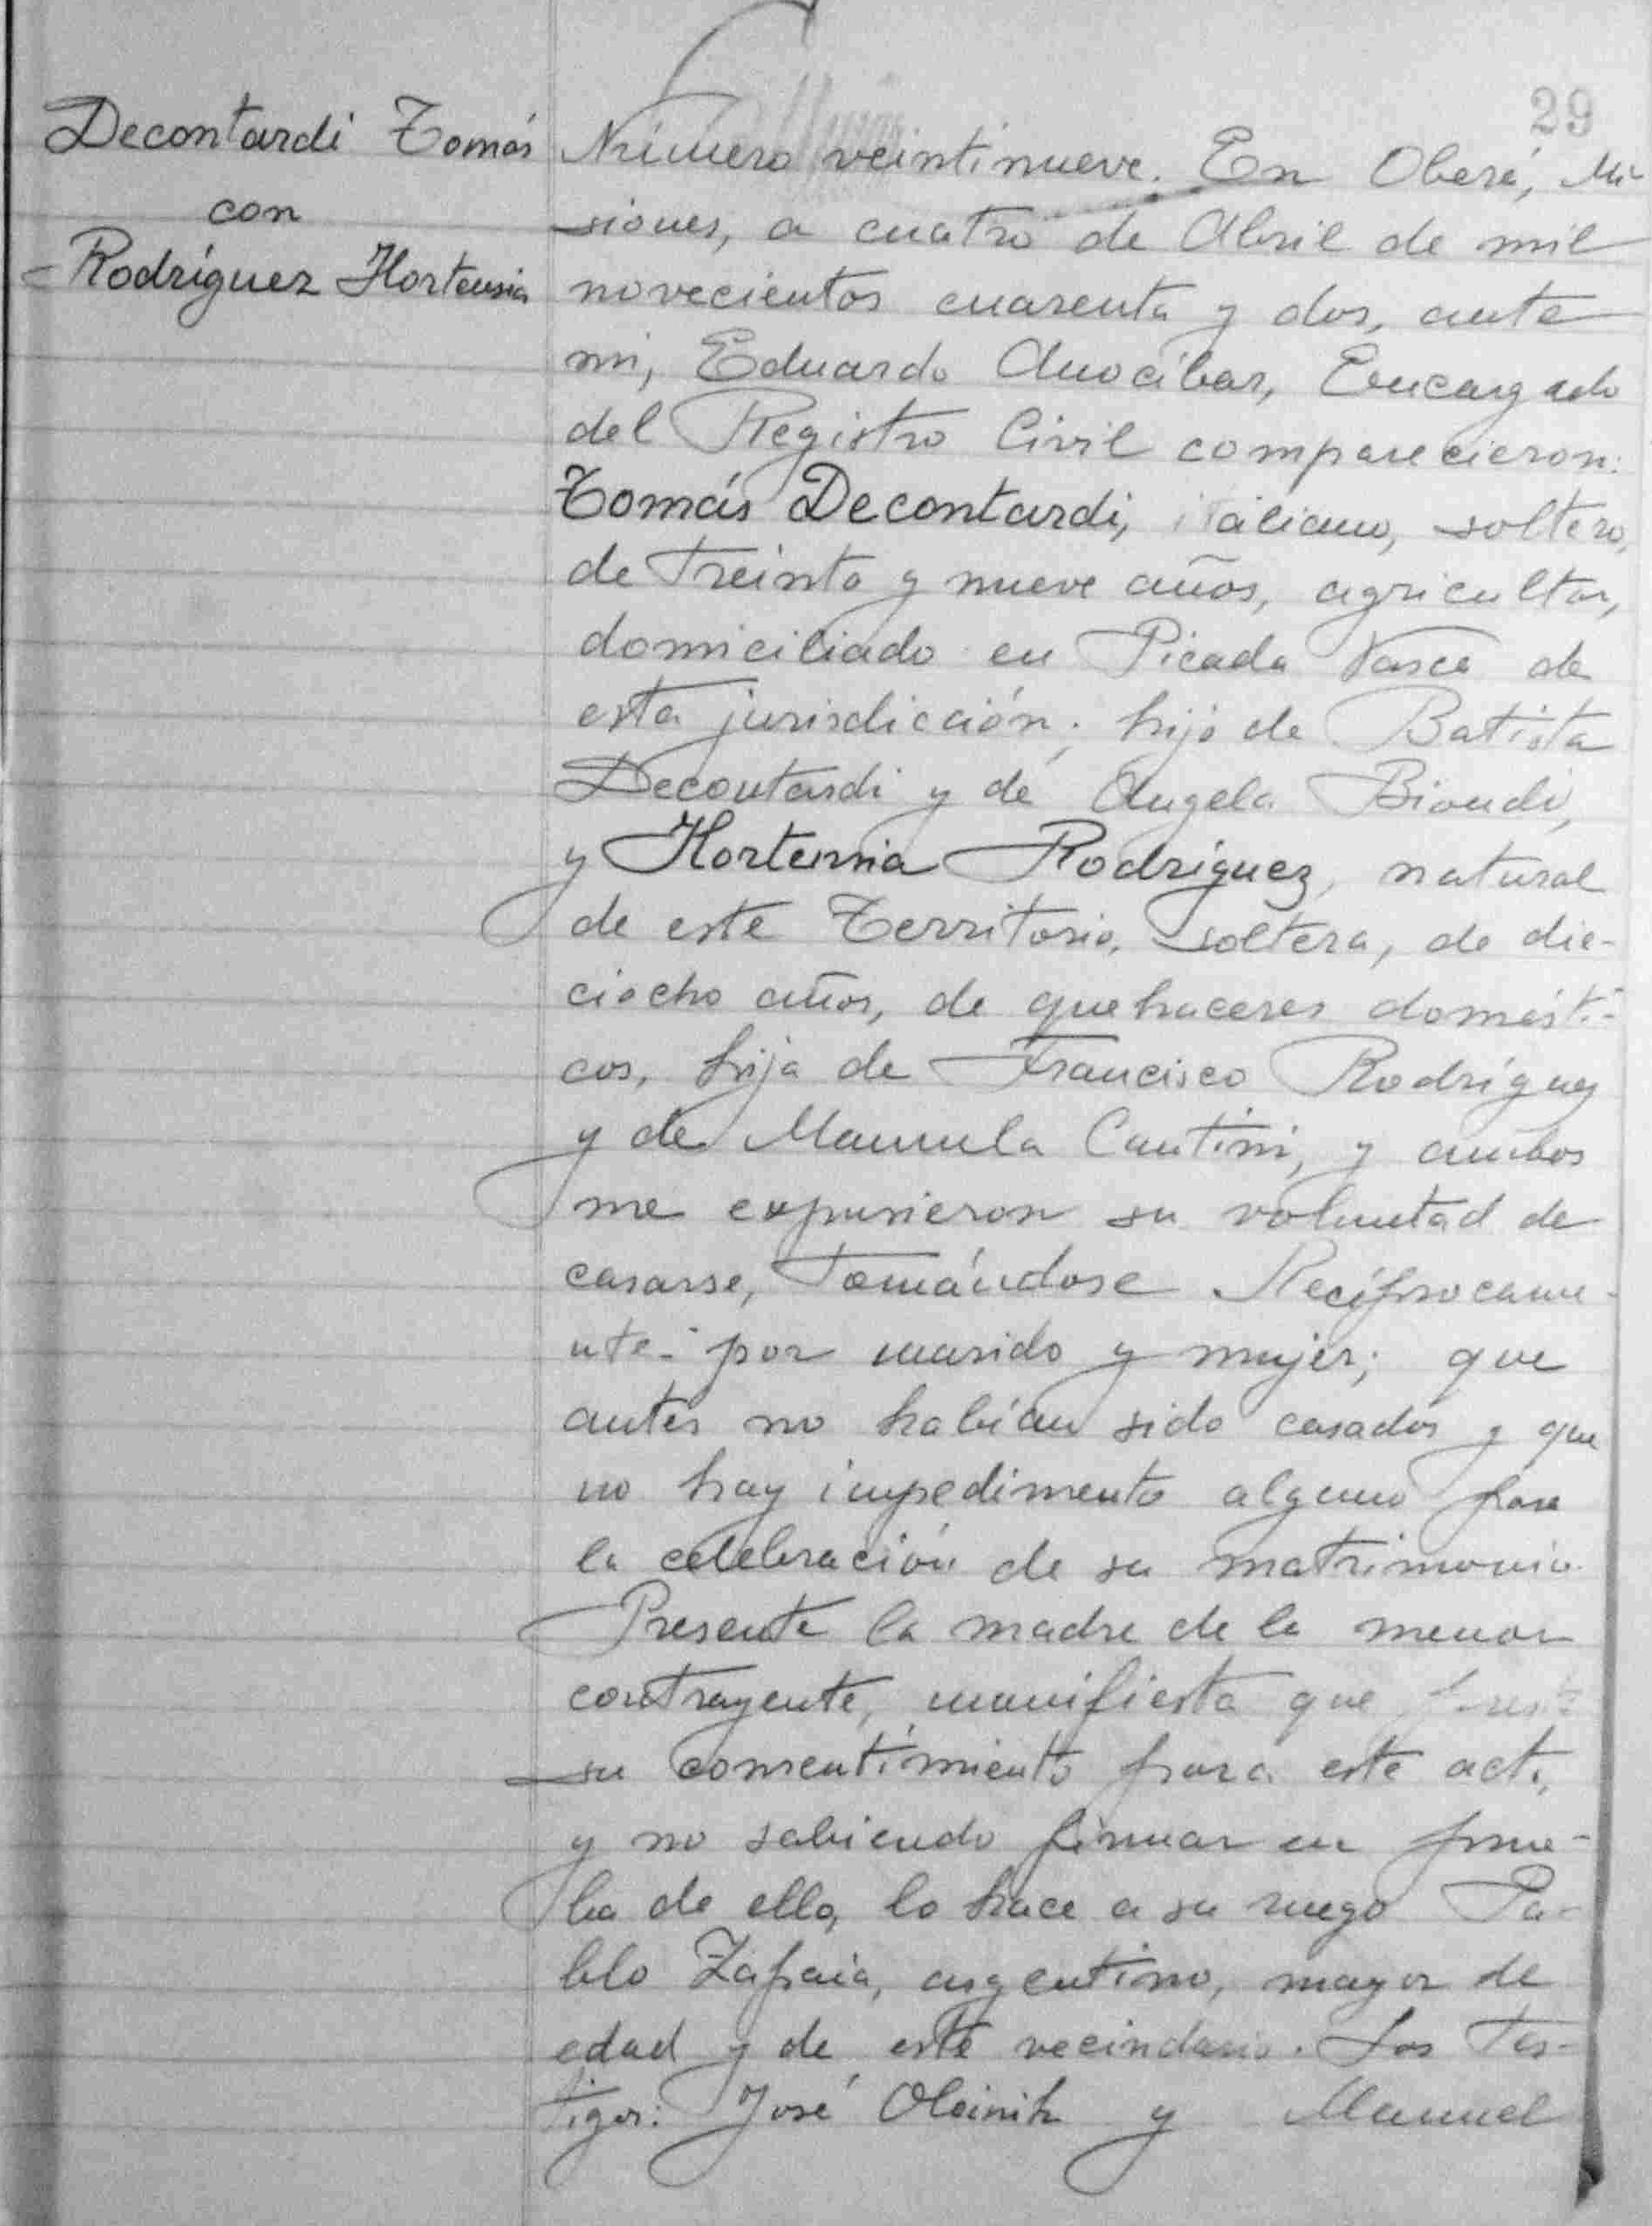 29
Decontardi Tomás
con
Rodríguez Hortensia
Número veintinueve. En Oberá, Mi-
siones, a cuatro de Abril de mil
novecientos cuarenta y dos, ante
mi, Eduardo Anocíbar, Encargado
del Registro Civil comparecieron:
Tomás Decontardi, italiano, soltero,
de treinta y nueve años, agricultor,
domiciliado en Picada Vasca de
esta jurisdicción; hijo de Batista
Decontardi y de Angela Biondi,
y Hortensia Rodríguez, natural
de este Territorio, soltera, de die-
ciocho años, de quehaceres domésti-
cos, hija de Francisco Rodríguez
y de Manuela Cantini, y ambos
me expusieron su voluntad de
casarse, tomándose Recíprocame-
nte por marido y mujer; que
antes no habían sido casados y que
no hay impedimento alguno para
la celebración de su matrimonio.
Presente la madre de la menor
contrayente, manifiesta que presta
su consentimiento para este acto,
y no sabiendo firmar en prue-
ba de ello, lo hace a su ruego Pa-
blo Zapaia, argentino, mayor de
edad y de este vecindario. Los tes-
tigos: José Oleinik y Manuel